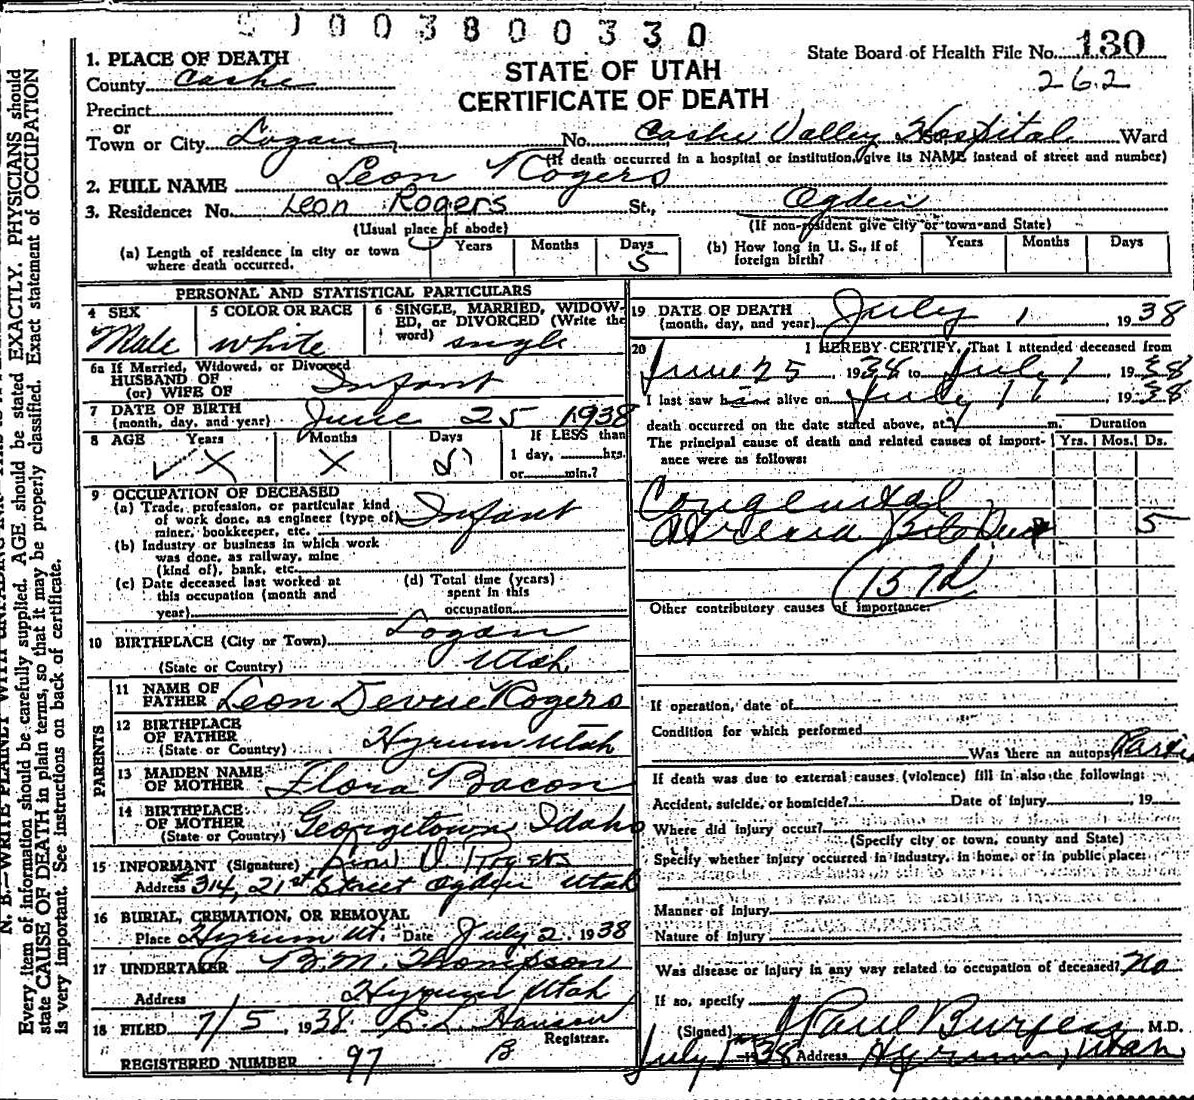 0 0 3 8 0 0 3 3 0
State Board of Health File No. 130
262
STATE OF UTAH
CERTIFICATE OF DEATH
1. PLACE OF DEATH
County Cache
Precinct
or
Town or City Logan No. Cache Valley Hospital Ward
(If death occurred in a hospital or institution, give its NAME instead of street and number)
2. FULL NAME Leon Rogers
3. Residence: No. Leon Rogers St., Ogden
(Usual place of abode) (If non-resident give city or town and State)
(a) Length of residence in city or town where death occurred. Years Months Days 5
(b) How long in U. S., if of foreign birth? Years Months Days
PERSONAL AND STATISTICAL PARTICULARS
4 SEX Male
5 COLOR OR RACE white
6 SINGLE, MARRIED, WIDOWED, or DIVORCED (Write the word) single
6a If Married, Widowed, or Divorced
HUSBAND OF
(or) WIFE OF Infant
7 DATE OF BIRTH
(month, day, and year) June 25 1938
8 AGE Years X Months X Days 5 If LESS than
1 day, hrs.
or min.?
9 OCCUPATION OF DECEASED
(a) Trade, profession, or particular kind
of work done, as engineer (type of)
miner, bookkeeper, etc. Infant
(b) Industry or business in which work
was done, as railway, mine
(kind of), bank, etc.
(c) Date deceased last worked at
this occupation (month and
year)
(d) Total time (years)
spent in this
occupation
10 BIRTHPLACE (City or Town) Logan
(State or Country) Utah
PARENTS
11 NAME OF FATHER Leon Rogers
12 BIRTHPLACE OF FATHER
(State or Country) Hyrum Utah
13 MAIDEN NAME OF MOTHER Flora Bacon
14 BIRTHPLACE OF MOTHER
(State or Country) Georgetown, Idaho
15 INFORMANT (Signature) Rogers
Address 314, 21st Street Ogden Utah
16 BURIAL, CREMATION, OR REMOVAL
Place Hyrum Ut. Date July 2, 1938
17 UNDERTAKER B. M. Thompson
Address Hyrum Utah
18 FILED 7/5, 1938 C. L. Hansen
Registrar.
REGISTERED NUMBER 97 B
19 DATE OF DEATH
(month, day, and year) July 1, 1938
20 I HEREBY CERTIFY, That I attended deceased from
June 25 1938 to July 1, 1938
I last saw him alive on July 1, 1938
death occurred on the date stated above, at m.
The principal cause of death and related causes of importance were as follows:
Duration
Yrs. Mos. Ds.
Congenital
Atresia Bile Duct 5
157d
Other contributory causes of importance:
If operation, date of
Condition for which performed
Was there an autopsy
If death was due to external causes (violence) fill in also the following:
Accident, suicide, or homicide? Date of injury , 19
Where did injury occur?
(Specify city or town, county and State)
Specify whether injury occurred in industry, in home, or in public place:
Manner of Injury
Nature of Injury
Was disease or injury in any way related to occupation of deceased? No
If so, specify
(Signed) Paul Burgess M.D.
July 1 1938 Address Hyrum, Utah
Every item of information should be carefully supplied. AGE should be stated EXACTLY. PHYSICIANS should
state CAUSE OF DEATH in plain terms, so that it may be properly classified. Exact statement of OCCUPATION
is very important. See instructions on back of certificate.